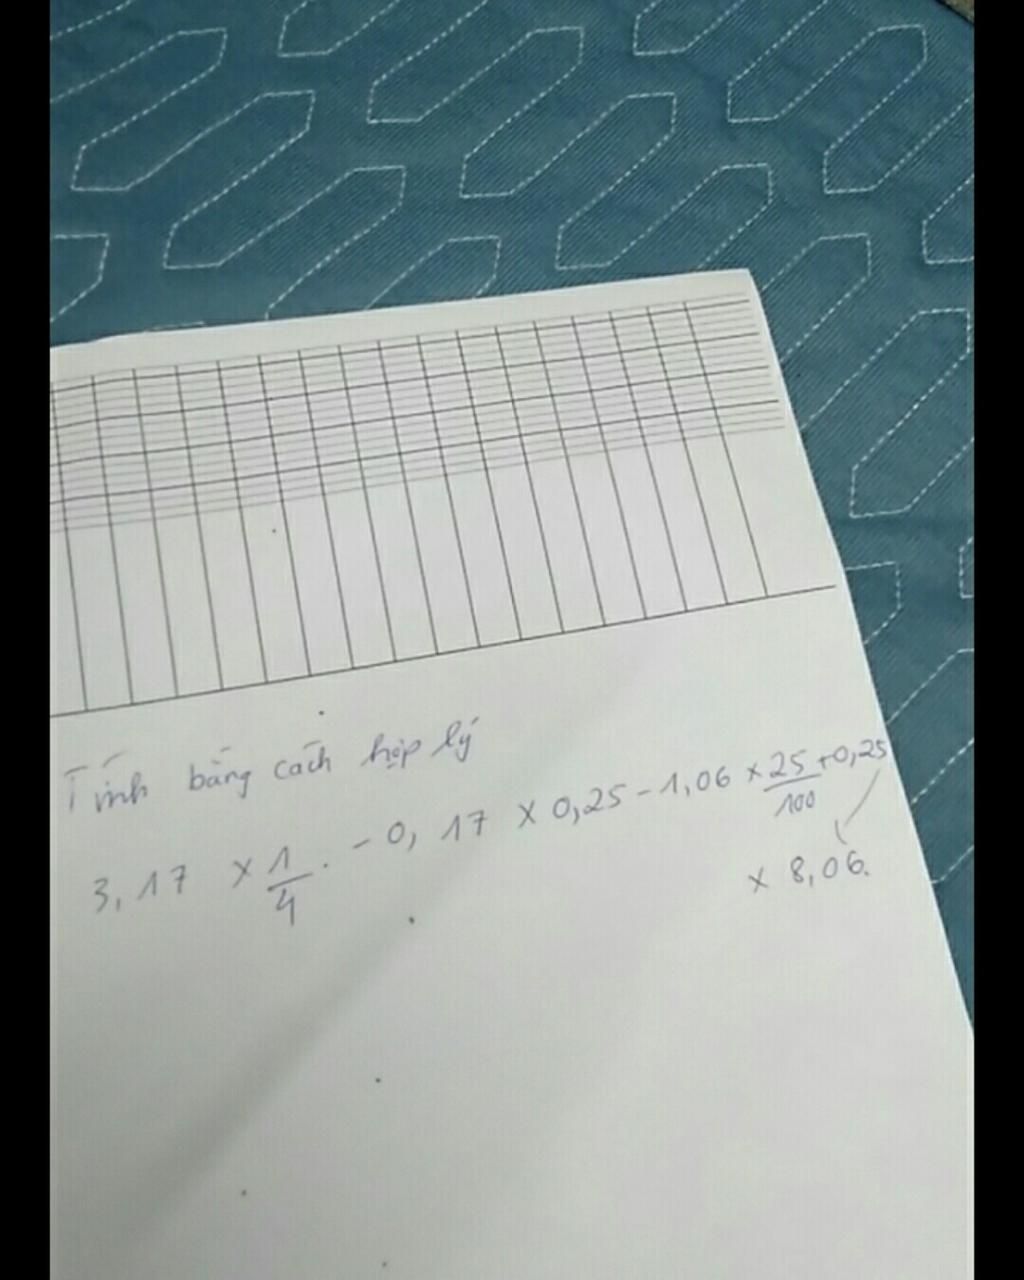 Tính bằng cách hợp lý
3,17 × 1/4 . - 0,17 × 0,25 - 1,06 × 25/100 + 0,25
× 8,06.